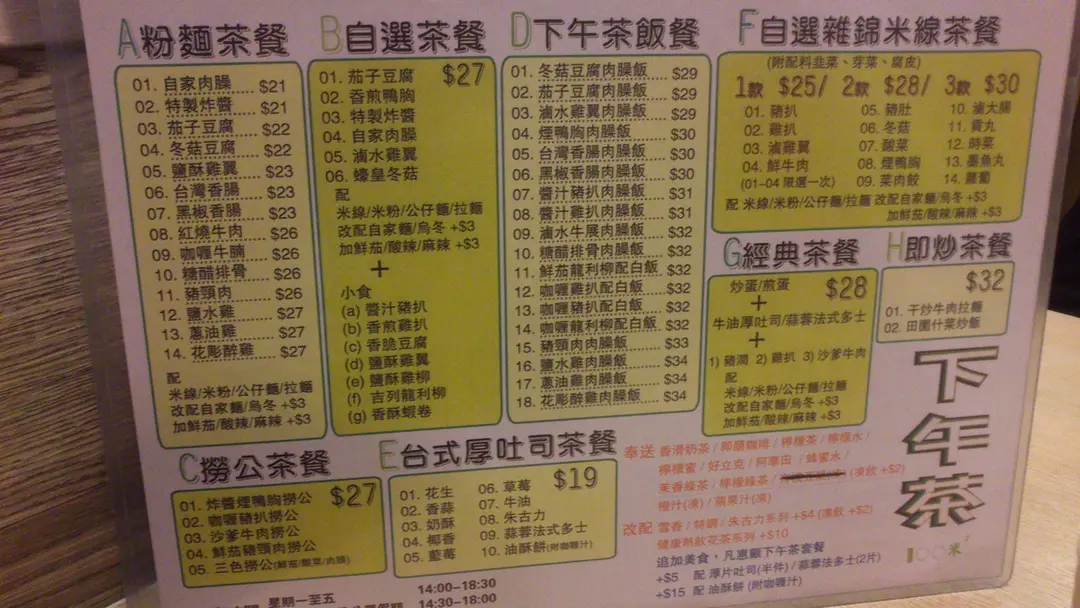 A粉麵茶餐
01. 自家肉臊 $21
02. 特製炸醬 $21
03. 茄子豆腐 $22
04. 冬菇豆腐 $22
05. 鹽酥雞翼 $23
06. 台灣香腸 $23
07. 黑椒香腸 $23
08. 紅燒牛肉 $26
09. 咖喱牛腩 $26
10. 糖醋排骨 $26
11. 豬頸肉 $26
12. 鹽水雞 $27
13. 蔥油雞 $27
14. 花彫醉雞 $27
配
米線/米粉/公仔麵/拉麵
改配自家麵/烏冬 +$3
加鮮茄/酸辣/麻辣 +$3
B自選茶餐
$27
01. 茄子豆腐
02. 香煎鴨胸
03. 特製炸醬
04. 自家肉臊
05. 滷水雞翼
06. 蠔皇冬菇
配
米線/米粉/公仔麵/拉麵
改配自家麵/烏冬 +$3
加鮮茄/酸辣/麻辣 +$3
+
小食
(a) 醬汁豬扒
(b) 香煎雞扒
(c) 香脆豆腐
(d) 鹽酥雞翼
(e) 鹽酥雞柳
(f) 吉列龍利柳
(g) 香酥蝦卷
D下午茶飯餐
01. 冬菇豆腐肉臊飯 $29
02. 茄子豆腐肉臊飯 $29
03. 滷水雞翼肉臊飯 $29
04. 煙鴨胸肉臊飯 $30
05. 台灣香腸肉臊飯 $30
06. 黑椒香腸肉臊飯 $30
07. 醬汁豬扒肉臊飯 $31
08. 醬汁雞扒肉臊飯 $31
09. 滷水牛展肉臊飯 $32
10. 糖醋排骨肉臊飯 $32
11. 鮮茄龍利柳配白飯 $32
12. 咖喱雞扒配白飯 $32
13. 咖喱豬扒配白飯 $32
14. 咖喱龍利柳配白飯 $32
15. 豬頸肉肉臊飯 $33
16. 鹽水雞肉臊飯 $34
17. 蔥油雞肉臊飯 $34
18. 花彫醉雞肉臊飯 $34
F自選雜錦米線茶餐
(附配料韭菜、芽菜、腐皮)
1款 $25/ 2款 $28/ 3款 $30
01. 豬扒
02. 雞扒
03. 滷雞翼
04. 鮮牛肉
(01-04 限選一次)
05. 豬肚
06. 冬菇
07. 酸菜
08. 煙鴨胸
09. 菜肉餃
10. 滷大腸
11. 貢丸
12. 時菜
13. 墨魚丸
14. 蘿蔔
配 米線/米粉/公仔麵/拉麵 改配自家麵/烏冬 +$3
加鮮茄/酸辣/麻辣 +$3
G經典茶餐
炒蛋/煎蛋 $28
+
牛油厚吐司/蒜蓉法式多士
+
1) 豬潤 2) 雞扒 3) 沙爹牛肉
配
米線/米粉/公仔麵/拉麵
改配自家麵/烏冬 +$3
加鮮茄/酸辣/麻辣 +$3
H即炒茶餐
$32
01. 干炒牛肉拉麵
02. 田園什菜炒飯
C撈公茶餐
$27
01. 炸醬煙鴨胸撈公
02. 咖喱豬扒撈公
03. 沙爹牛肉撈公
04. 鮮茄豬頸肉撈公
05. 三色撈公(鮮茄/酸菜/肉臊)
E台式厚吐司茶餐
$19
01. 花生
02. 香蒜
03. 奶酥
04. 椰香
05. 藍莓
06. 草莓
07. 牛油
08. 朱古力
09. 蒜蓉法式多士
10. 油酥餅(附咖喱汁)
奉送 香滑奶茶 / 即磨咖啡 / 檸檬茶 / 檸檬水 /
檸檬蜜 / 好立克 / 阿華田 / 蜂蜜水 /
茉香綠茶 / 檸檬綠茶 / (凍飲 +$2)
橙汁(凍) / 蘋果汁(凍)
改配 雪香 / 特調 / 朱古力系列 +$4 (凍飲 +$2)
健康熱飲花茶系列 +$10
追加美食,凡惠顧下午茶套餐
+$5 配 厚片吐司(半件) / 蒜蓉法式多士(2片)
+$15 配 油酥餅 (附咖喱汁)
下午茶
100米
星期一至五 14:00-18:30
14:30-18:00